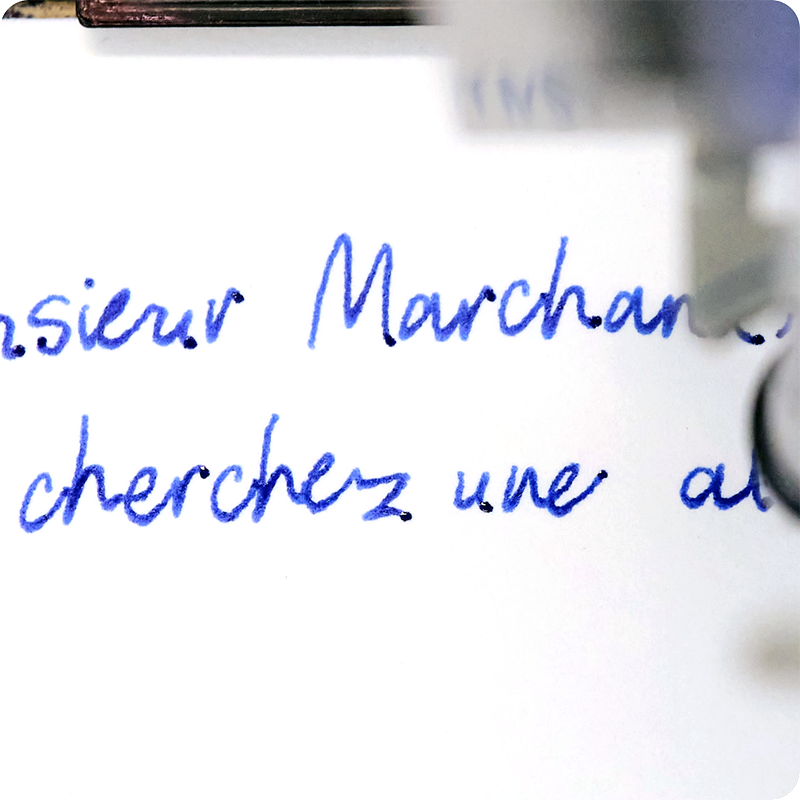 nsieur Marchan
cherchez une al